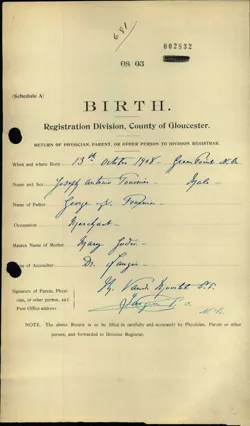 681
002832
08 03
(Schedule A)
BIRTH.
Registration Division, County of Gloucester.
RETURN OF PHYSICIAN, PARENT, OR OTHER PERSON TO DIVISION REGISTRAR.
When and where Born 13th October 1908 - Green Point N.B.
Name and Sex Joseph Antoine Male
Name of Father George
Occupation Merchant
Maiden Name of Mother Mary Godin
Name of Accoucher Dr.
Signature of Parent, Physi-
cian, or other person, and
Post Office address.
N.B.
NOTE. The above Return is to be filled in carefully and accurately by Physician, Parent or other
person, and forwarded to Division Registrar.